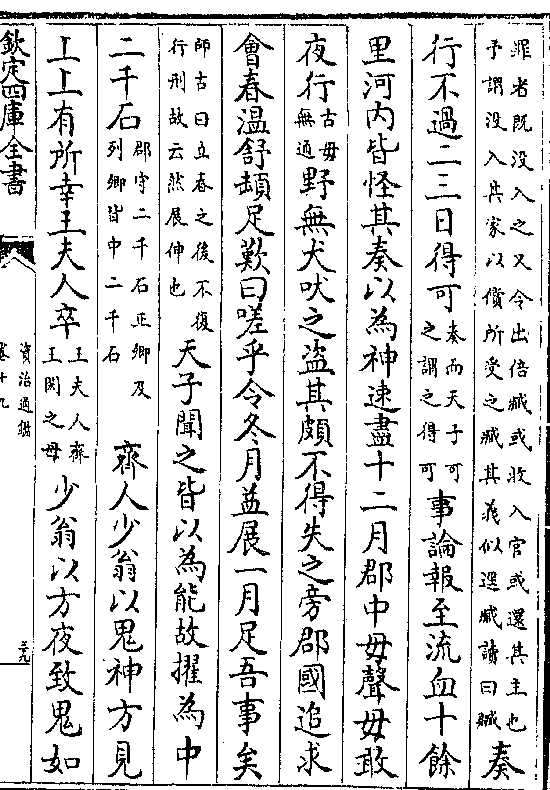 罪者既没入之又令出倍臧或收入官或還其主也
予謂没入其家以償所受之臧其義似臧讀曰贓
奏
行不過二三日得可
奏而天子可
之謂之得可
事論報至流血十餘
里河内皆怪其奏以為神速盡十二月郡中毋聲毋敢
夜行
古毋
無通
野無犬吠之盗其頗不得失之旁郡國追求
會春温舒頓足歎曰嗟乎令冬月益展一月足吾事矣
師古曰立春之後不復
行刑故云然展伸也
天子聞之皆以為能故擢為中
二千石
郡守二千石正卿及
列卿皆中二千石
齊人少翁以鬼神方見
上上有所幸王夫人卒
王夫人齊
王閎之母
少翁以方夜致鬼如
欽定四庫全書
資治通鑑
卷十九